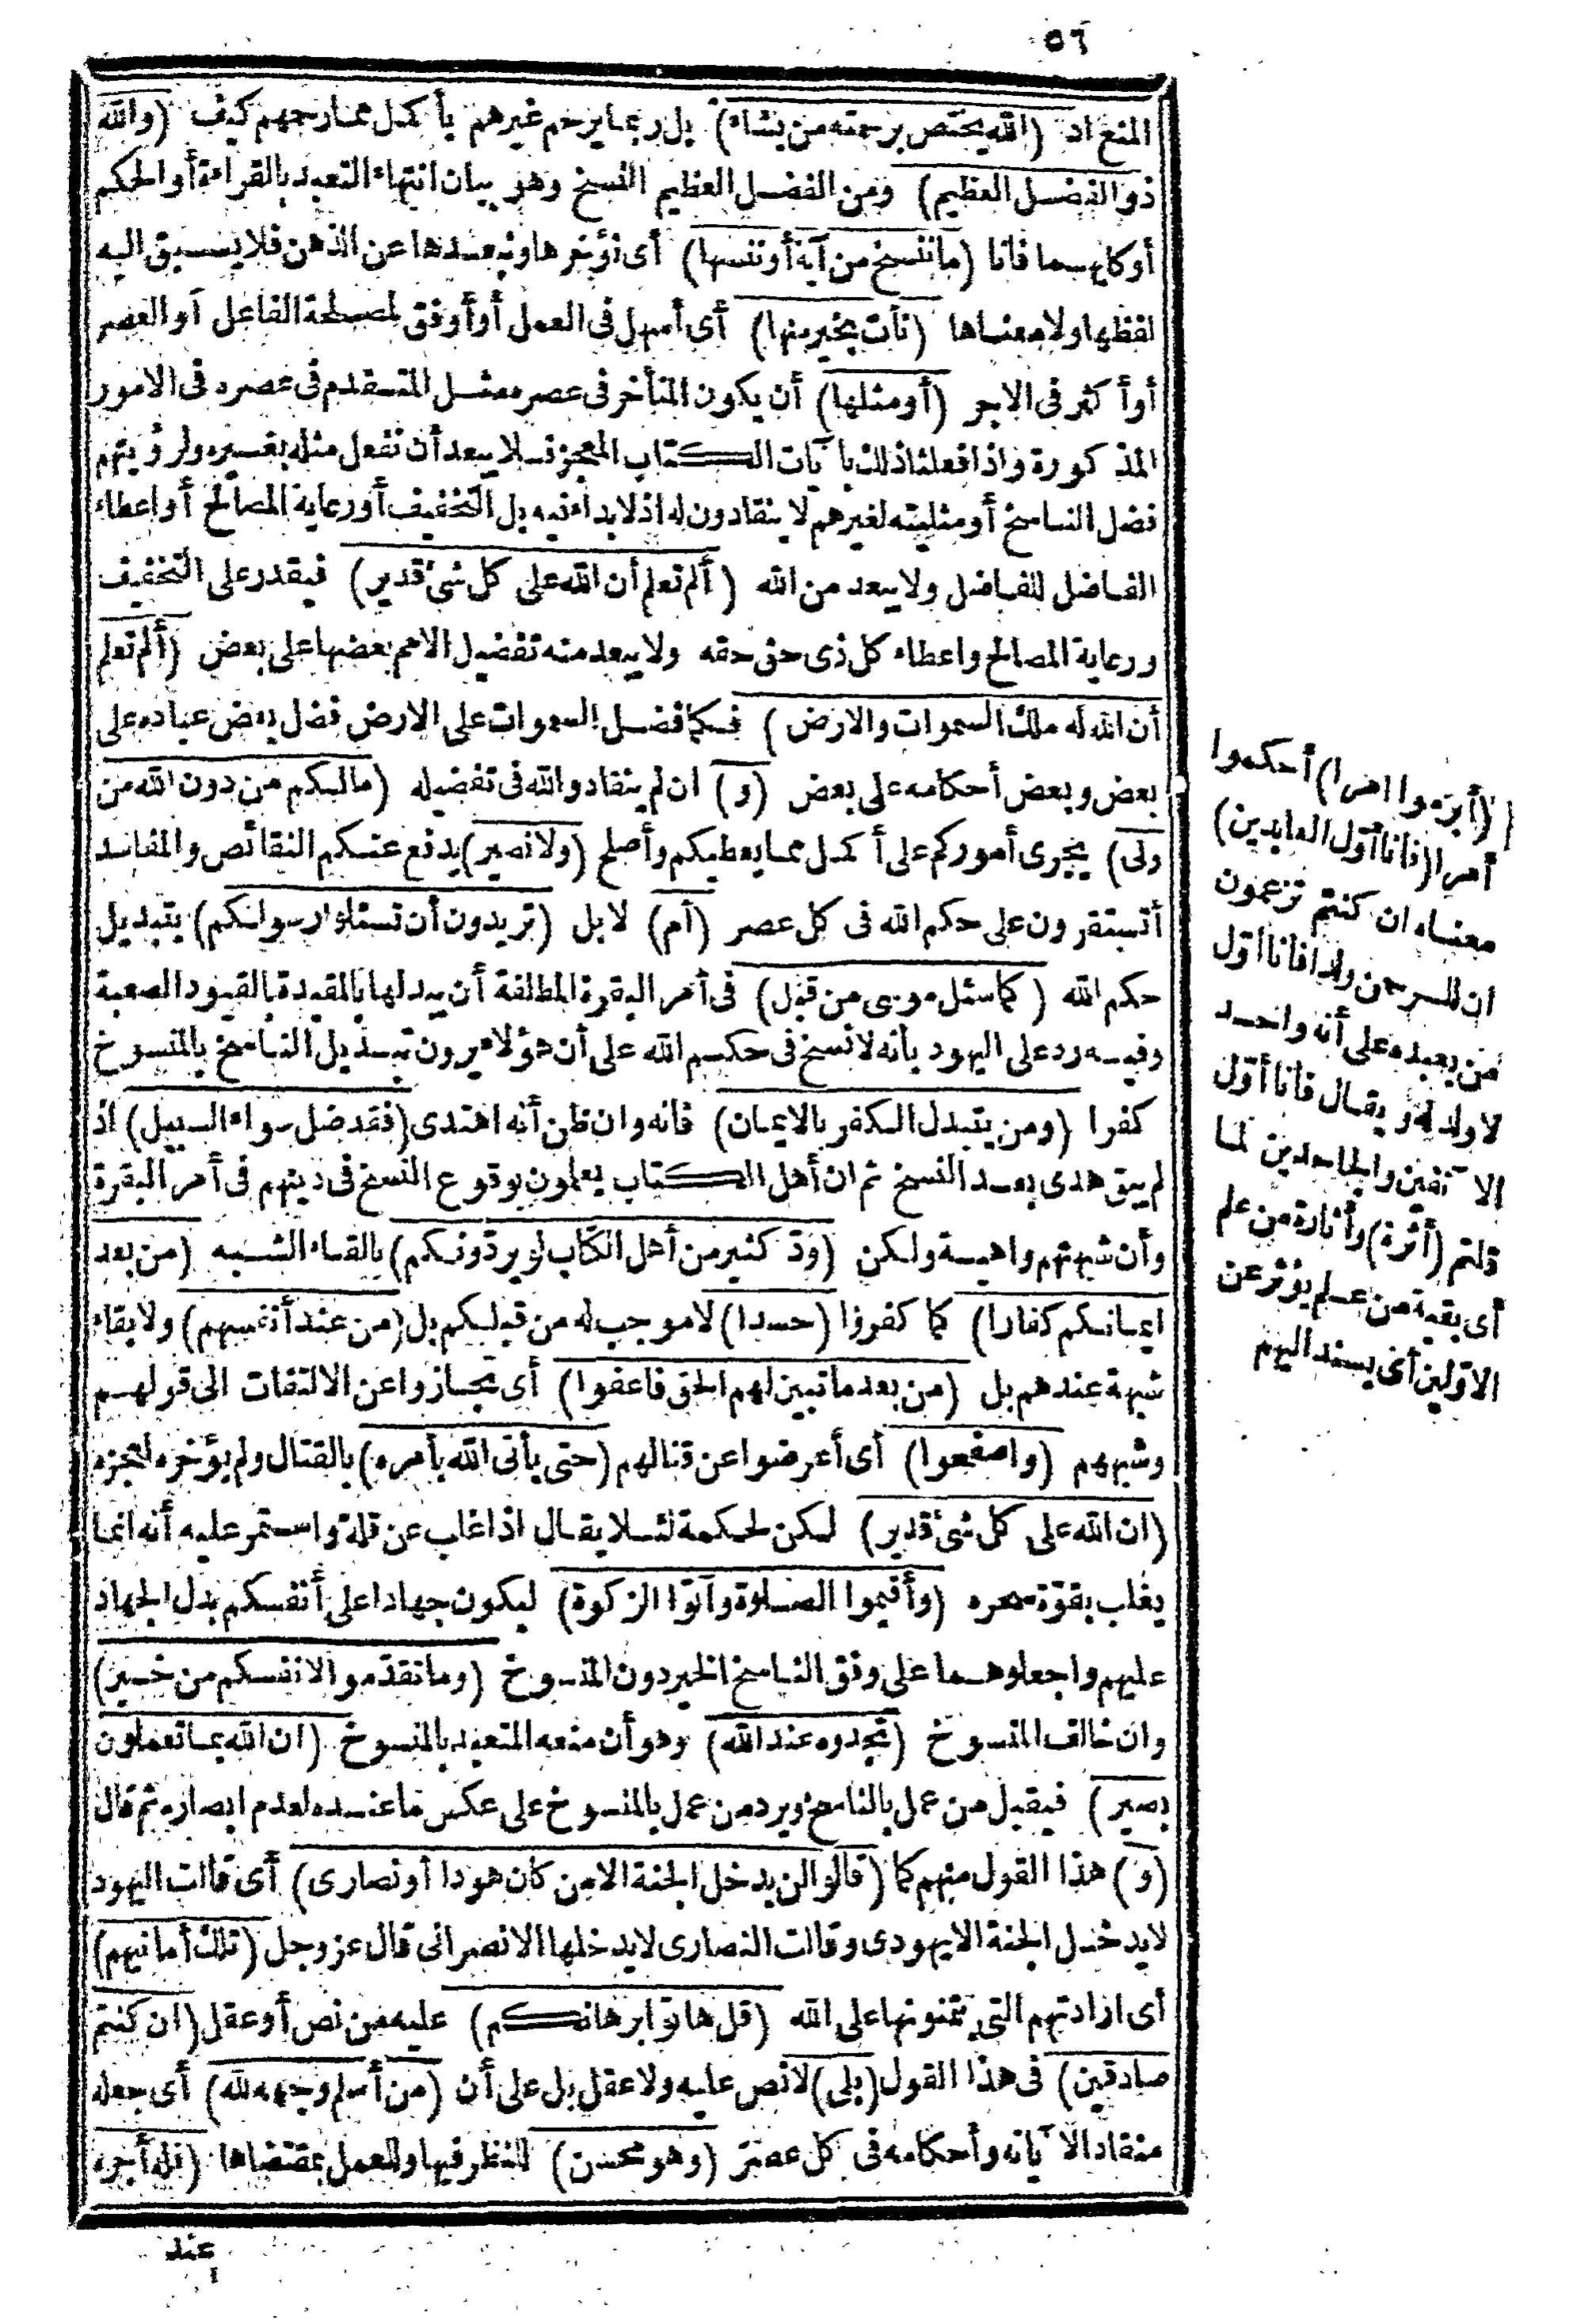 ٥٦
المنع اذ (الله يختص برحمته من يشاء) بل ربما يرحم غيرهم بأكمل مما رحمهم كيف (والله
ذو الفضل العظيم) ومن الفضل العظيم النسخ وهو بيان انتهاء التعبد بالقراءة أو الحكم
أو كليهما فانا (ما ننسخ من آية أو ننسها) أى نؤخرها ونبعدها عن الذهن فلا يسبق اليه
لفظها ولا معناها (نأت بخير منها) أى أسهل فى العمل أو أوفق لمصلحة الفاعل أو العصر
أو أكثر فى الاجر (أو مثلها) أن يكون المتأخر فى عصره مثل المتقدم فى عصره فى الامور
المذكورة واذا فعلنا ذلك بآيات الكتاب المعجز فلا يبعد أن نفعل مثله بغيره ولرؤيتهم
فضل الناسخ أو مثليته لغيرهم لا ينقادون له اذ لا بداء فيه بل التخفيف أو رعاية المصالح أو اعطاء
الفاضل للفاضل ولا يبعد من الله (ألم تعلم أن الله على كل شئ قدير) فيقدر على التخفيف
ورعاية المصالح واعطاء كل ذى حق حقه ولا يبعد منه تفضيل الامم بعضها على بعض (ألم تعلم
أن الله له ملك السموات والارض) فكما فضل السموات على الارض فضل بعض عباده على
بعض وبعض أحكامه على بعض (و) ان لم ينقادوا لله فى تفضيله (مالكم من دون الله من
ولى) يجرى أموركم على أكمل مما يعطيكم وأصلح (ولا نصير) يدفع عنكم النقائص والمفاسد
أتستقرون على حكم الله فى كل عصر (أم) لا بل (تريدون أن تسئلوا رسولكم) بتبديل
حكم الله (كما سئل موسى من قبل) فى أمر البقرة المطلقة أن يبدلها بالمقيدة بالقيود الصعبة
وفيه رد على اليهود بأنه لا نسخ فى حكم الله على أن هؤلاء يرون تبديل الناسخ بالمنسوخ
كفرا (ومن يتبدل الكفر بالايمان) فانه وان ظن أنه اهتدى (فقد ضل سواء السبيل) اذ
لم يبق هدى بعد النسخ ثم ان أهل الكتاب يعلمون بوقوع النسخ فى دينهم فى أمر البقرة
وأن شبهتهم واهية ولكن (ودّ كثير من أهل الكتاب لو يردّونكم) بالقاء الشبه (من بعد
ايمانكم كفارا) كما كفروا (حسدا) لا موجب له من قبلكم بل (من عند أنفسهم) ولا بقاء
شبهة عندهم بل (من بعد ما تبين لهم الحق فاعفوا) أى تجاوزوا عن الالتفات الى قولهم
وشبههم (واصفحوا) أى أعرضوا عن قتالهم (حتى يأتى الله بأمره) بالقتال ولم يؤخره لعجزه
(ان الله على كل شئ قدير) لكن لحكمة لئلا يقال اذا غلب عن قلة واستمر عليه أنه انما
يغلب بقوّة سحره (وأقيموا الصلوة وآتوا الزكوة) ليكون جهادا على أنفسكم بدل الجهاد
عليهم واجعلوهما على وفق الناسخ الخير دون المنسوخ (وما تقدّموا لانفسكم من خير)
وان خالف المنسوخ (تجدوه عند الله) وهو أن منعه المتعبد بالمنسوخ (ان الله بما تعملون
بصير) فيقبل من عمل بالناسخ ويرد من عمل بالمنسوخ على عكس ما عنده لعدم ابصاره ثم قال
(و) هذا القول منهم كما (قالوا لن يدخل الجنة الا من كان هودا أو نصارى) أى قالت اليهود
لا يدخل الجنة الا يهودى وقالت النصارى لا يدخلها الا نصرانى قال عز وجل (تلك أمانيهم)
أى ارادتهم التى يتمنونها على الله (قل هاتوا برهانكم) عليه من نص أو عقل (ان كنتم
صادقين) فى هذا القول (بلى) لا نص عليه ولا عقل بل على أن (من أسلم وجهه لله) أى جعله
منقادا لآياته وأحكامه فى كل عصر (وهو محسن) للنظر فيها وللعمل بمقتضاها (فله أجره
عند
(أبرموا امرا) أحكموا
أمرا (فأنا أوّل العابدين)
معناه ان كنتم تزعمون
ان للرحمن ولدا فانا أوّل
من يعبده على أنه واحد
لا ولد له ويقال فانا أوّل
الآنفين والجاحدين لما
قلتم (أثرة) وأثارة من علم
أى بقية من علم يؤثر عن
الاوّلين أى يسند اليهم